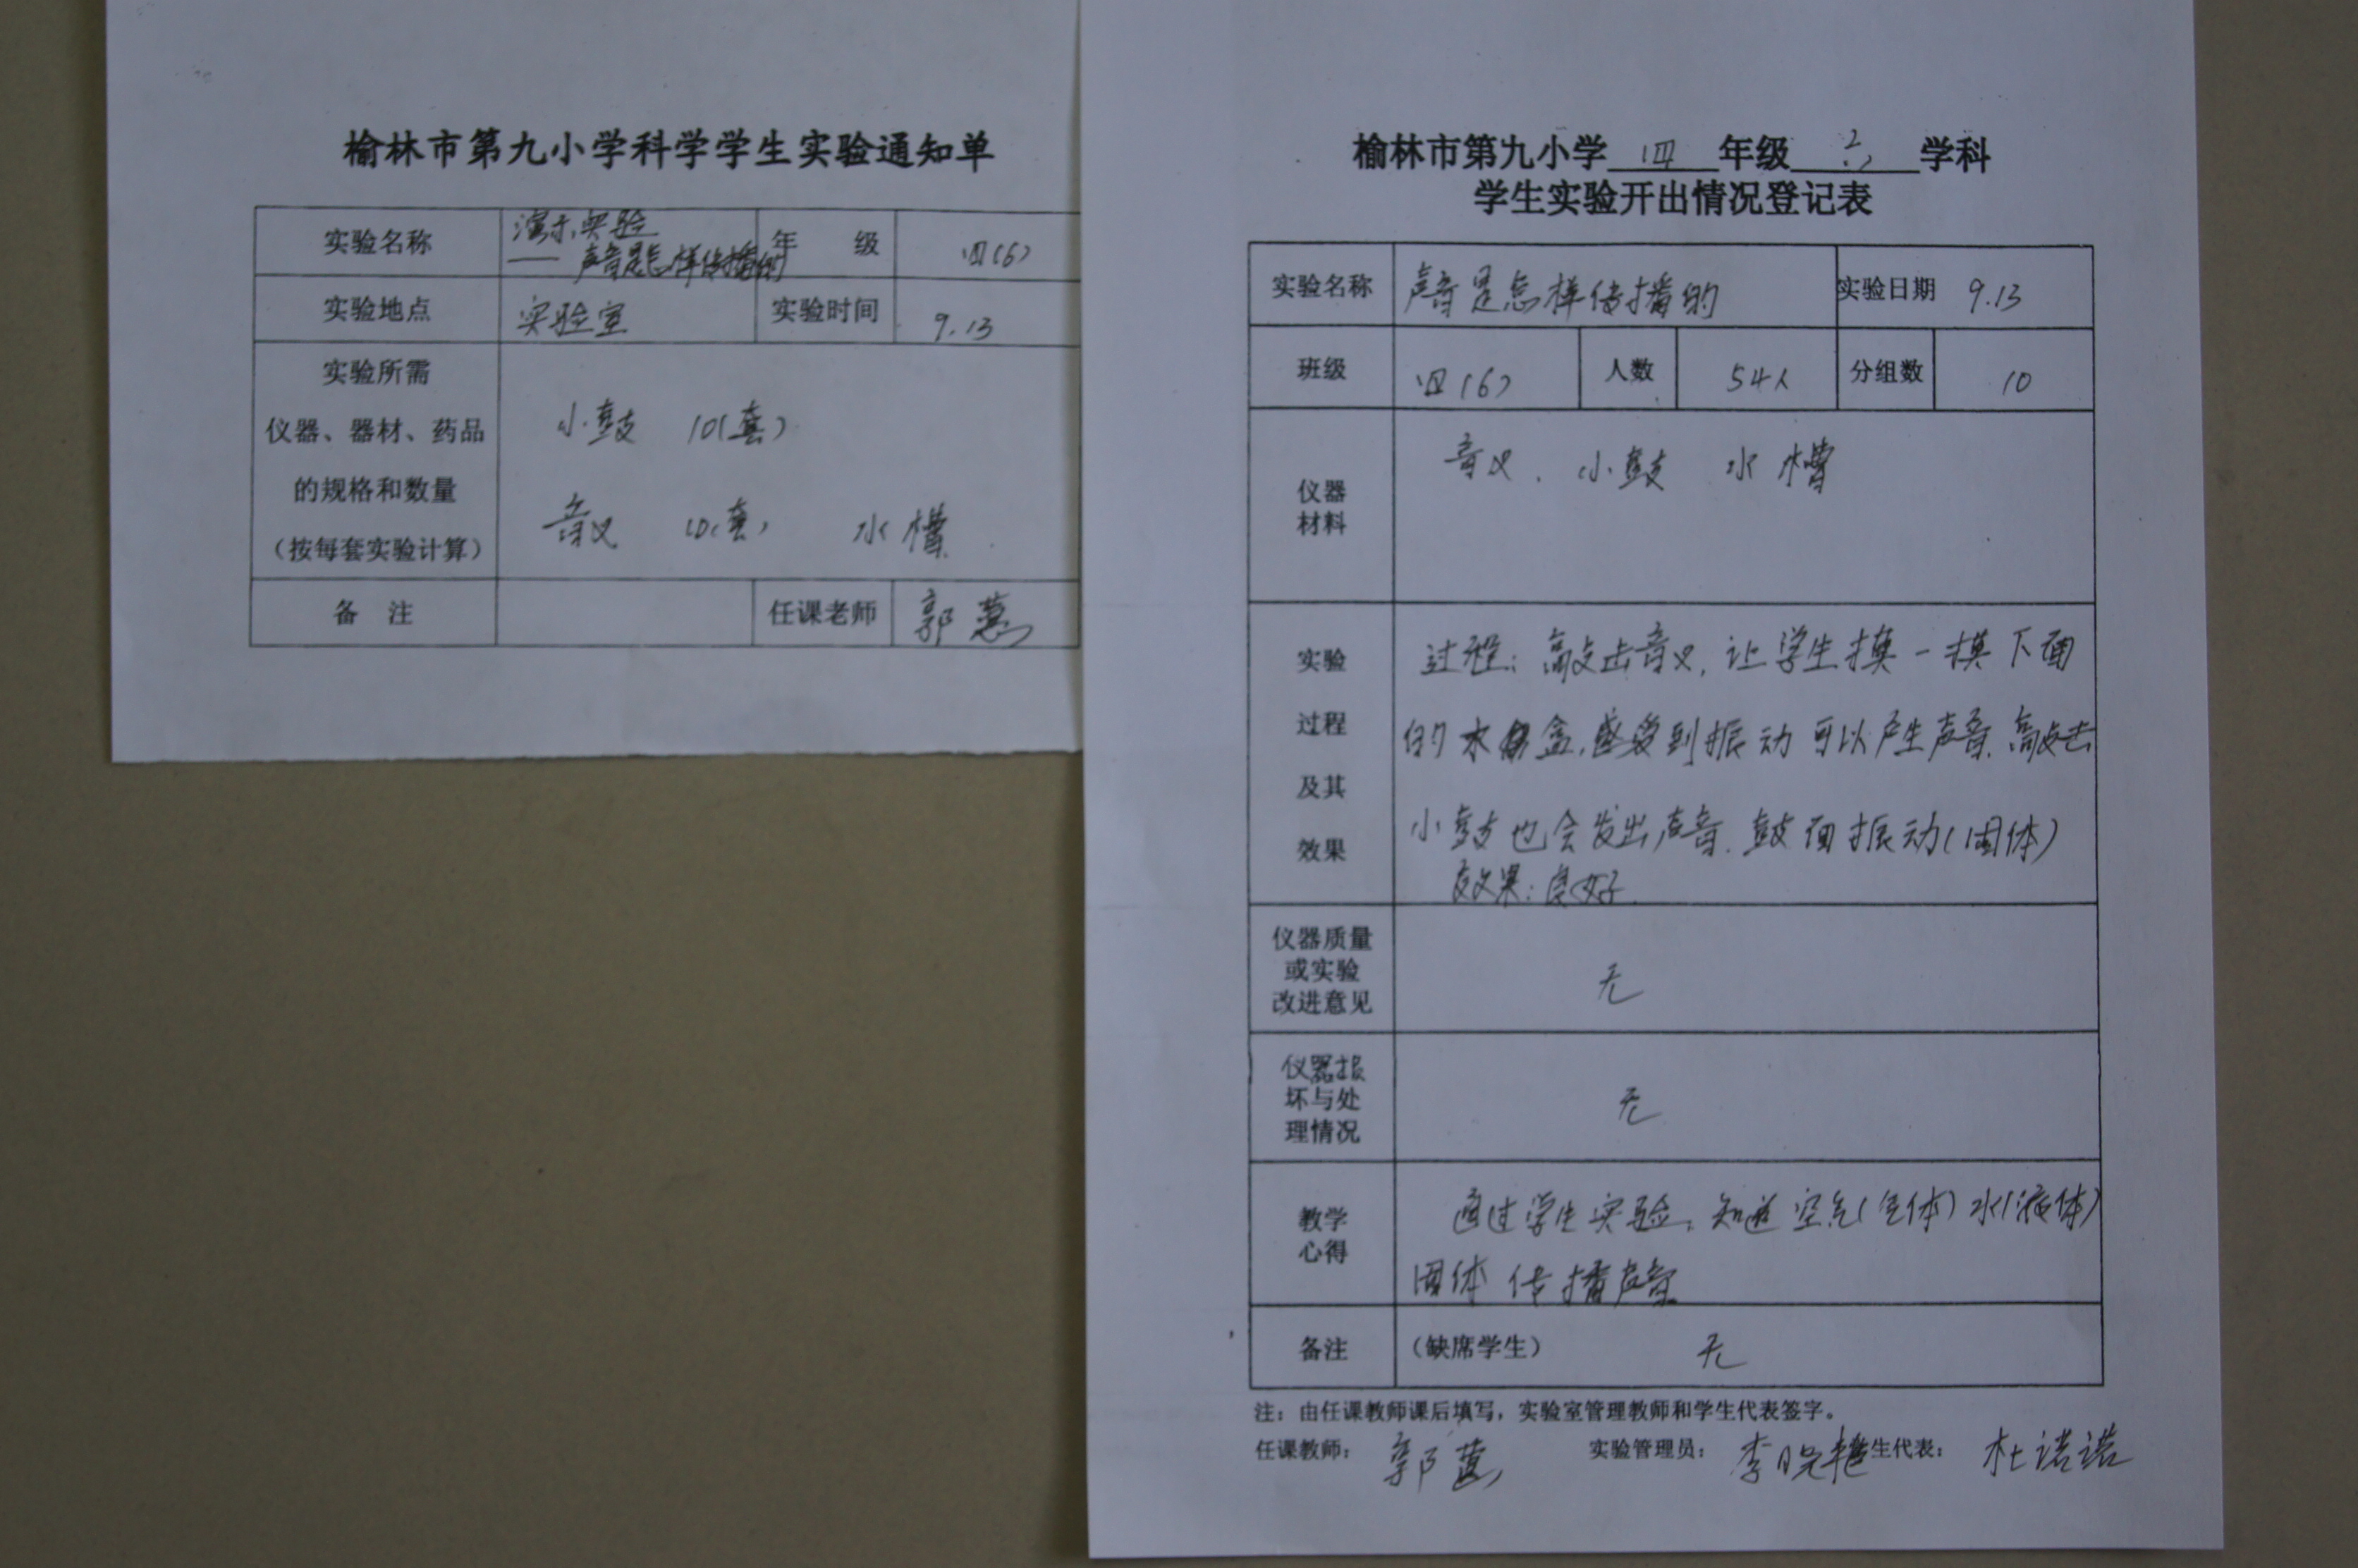 榆林市第九小学科学学生实验通知单
实验名称 演示实验 —— 声音是怎样传播的 年 级 四(6)
实验地点 实验室 实验时间 9.13
实验所需
仪器、器材、药品
的规格和数量
(按每套实验计算)
小鼓 10(套)
音叉 10(套) 水槽
备 注 任课老师 郭慧
榆林市第九小学 四 年级 六 学科
学生实验开出情况登记表
实验名称 声音是怎样传播的 实验日期 9.13
班级 四(6) 人数 54人 分组数 10
仪器
材料
音叉、小鼓 水槽
实验
过程
及其
效果
过程:敲击音叉,让学生摸一摸下面
的木盒,感受到振动可以产生声音.敲击
小鼓也会发出声音.鼓面振动(固体)
效果:良好.
仪器质量
或实验
改进意见
无
仪器损
坏与处
理情况
无
教学
心得
通过学生实验,知道空气(气体)水(液体)
固体传播声音
备注 (缺席学生) 无
注:由任课教师课后填写,实验室管理教师和学生代表签字。
任课教师: 郭慧 实验管理员: 李晓艳 生代表: 杜诺诺